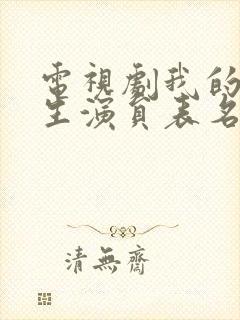 電視劇我的
生演員表名
清無齋